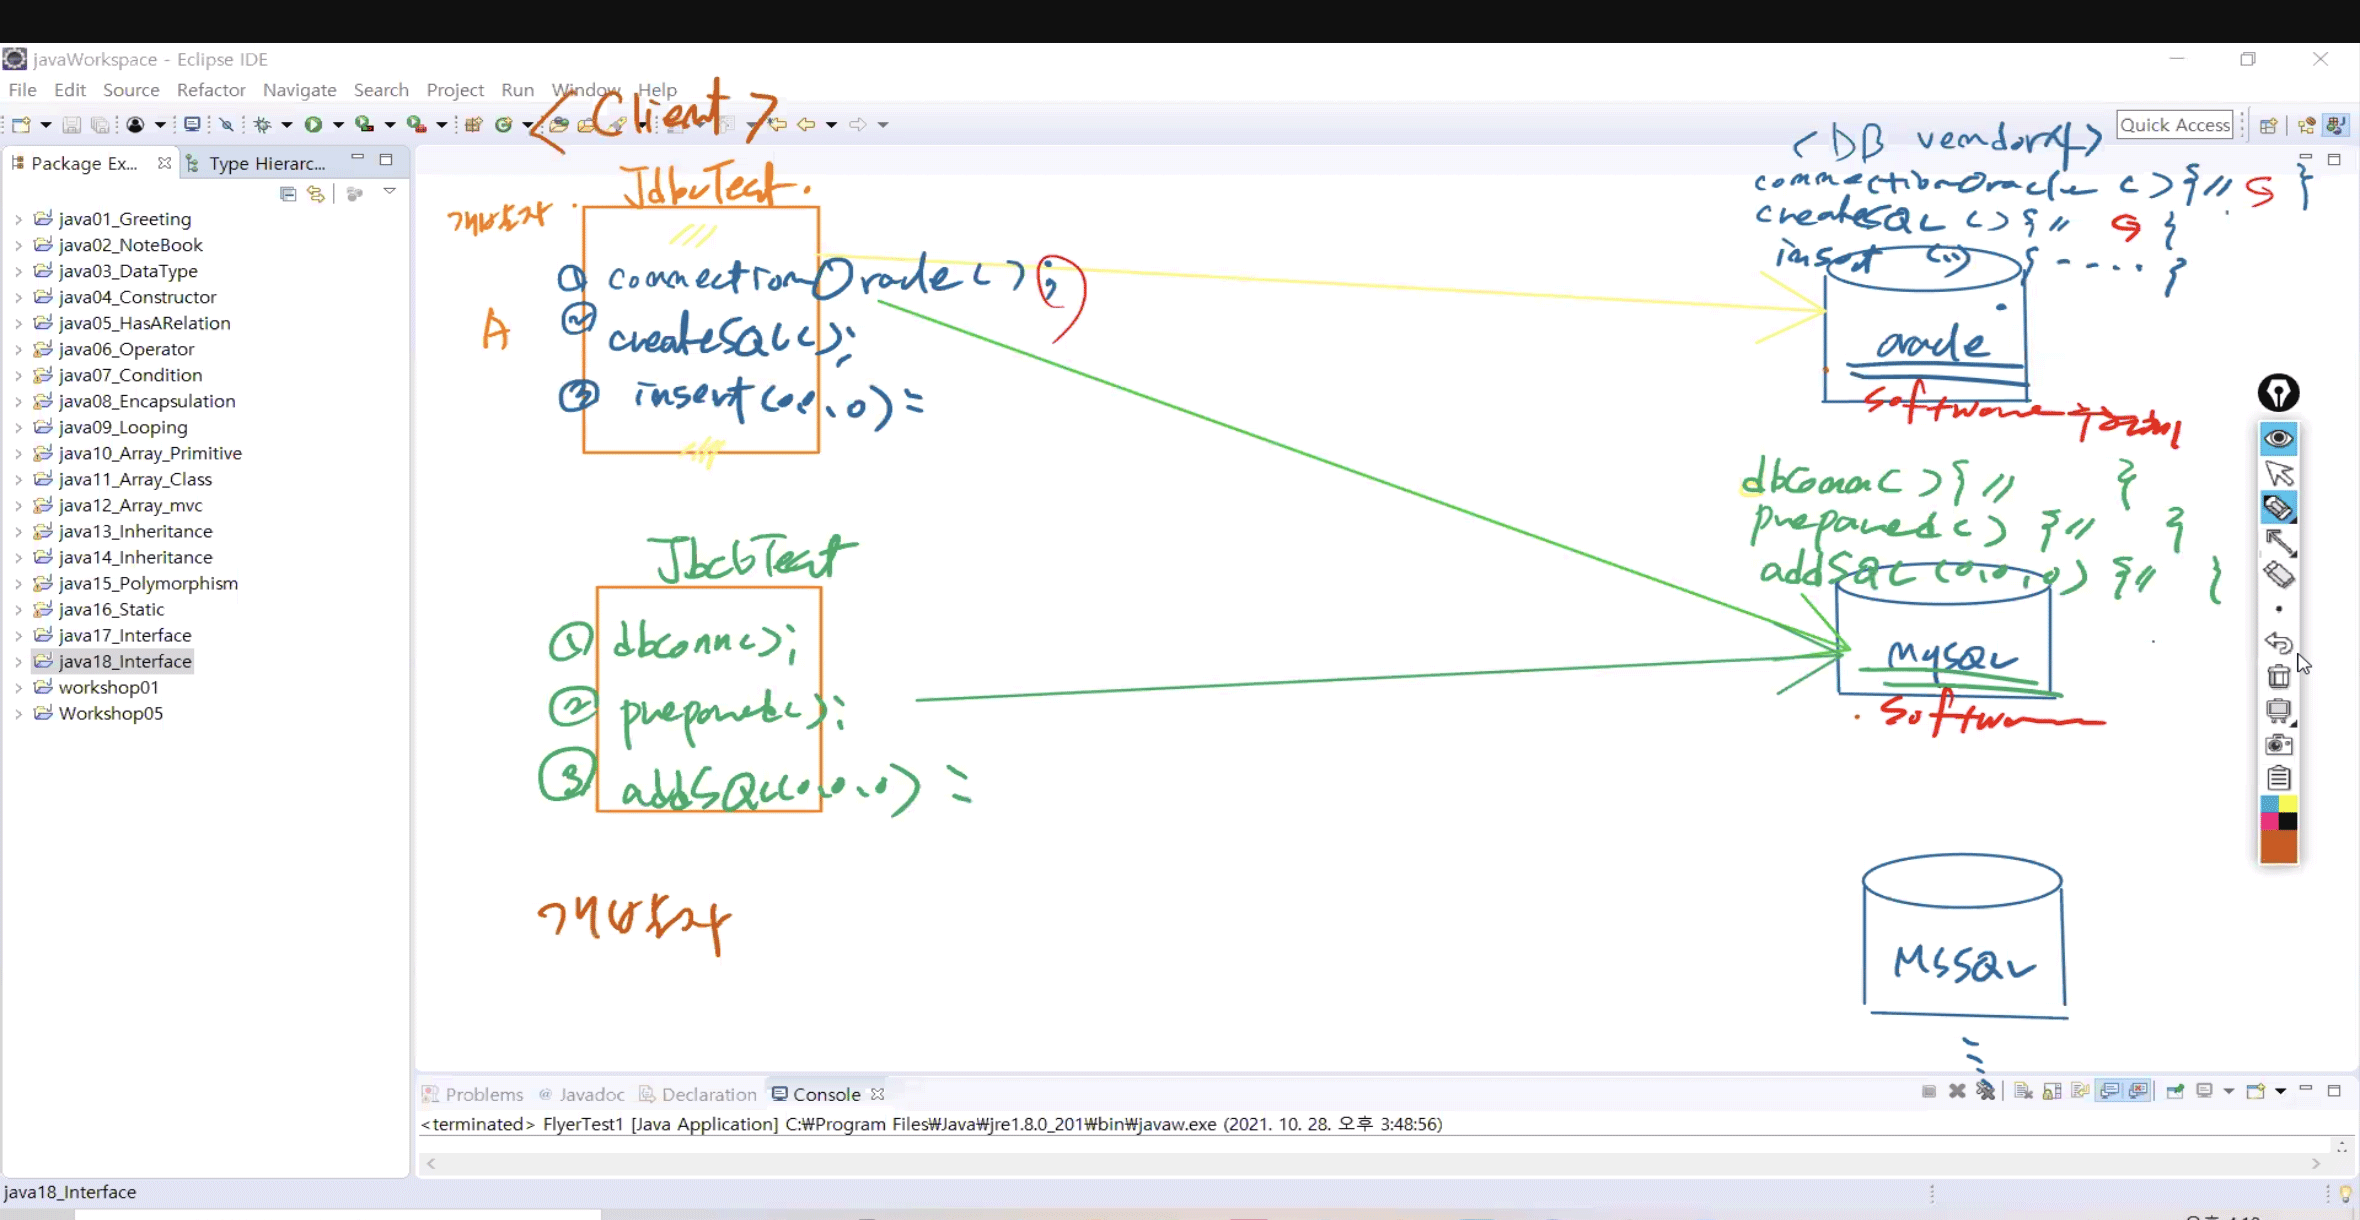 javaWorkspace - Eclipse IDE
File Edit Source Refactor Navigate Search Project Run Window Help
Quick Access
Package Ex...
Type Hierarc...
java01_Greeting
java02_NoteBook
java03_DataType
java04_Constructor
java05_HasARelation
java06_Operator
java07_Condition
java08_Encapsulation
java09_Looping
java10_Array_Primitive
java11_Array_Class
java12_Array_mvc
java13_Inheritance
java14_Inheritance
java15_Polymorphism
java16_Static
java17_Interface
java18_Interface
workshop01
Workshop05
<Client>
JdbcTest.
개발자
A
① connectionOracle();
② createSQL();
③ insert(0,0,0)
JdbcTest
① dbconn();
② prepared();
③ addSQL(0,0,0)
개발자
<DB vendor사>
connectionOracle(){// }
createSQL(){// }
insert(..){---- }
oracle
software
dbConn(){// }
prepared(){// }
addSQL(0,0,0){// }
MySQL
software
MSSQL
Problems
Javadoc
Declaration
Console
<terminated> FlyerTest1 [Java Application] C:₩Program Files₩Java₩jre1.8.0_201₩bin₩javaw.exe (2021. 10. 28. 오후 3:48:56)
java18_Interface